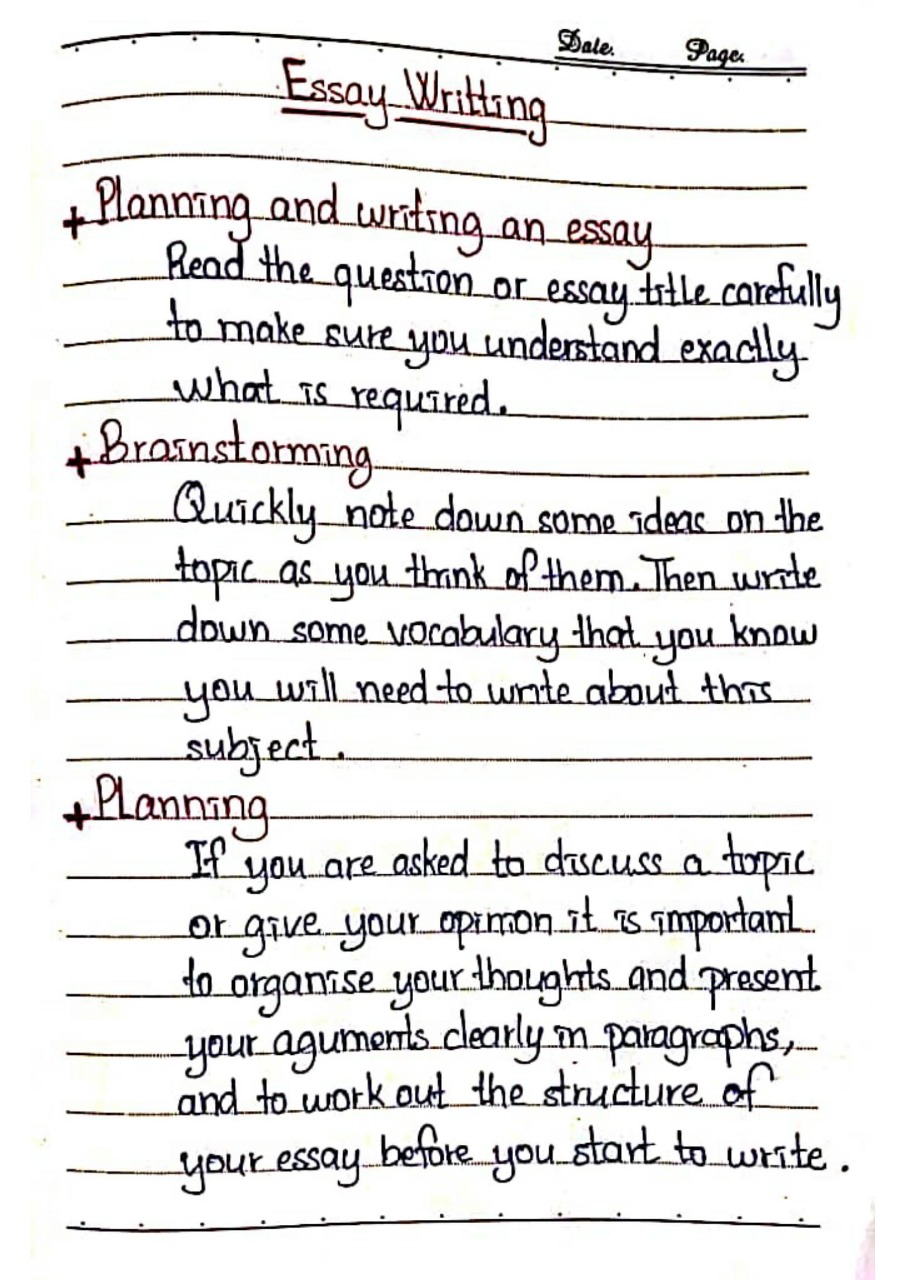 Date. Page.
Essay Writting
+ Planning and writing an essay
Read the question or essay title carefully
to make sure you understand exactlly
what is required.
+ Brainstorming
Quickly note down some ideas on the
topic as you think of them. Then write
down some vocabulary that you know
you will need to write about this
subject.
+ Planning
If you are asked to discuss a topic
or give your opinion it is important
to organise your thoughts and present
your aguments clearly in paragraphs,
and to work out the structure of
your essay before you start to write.